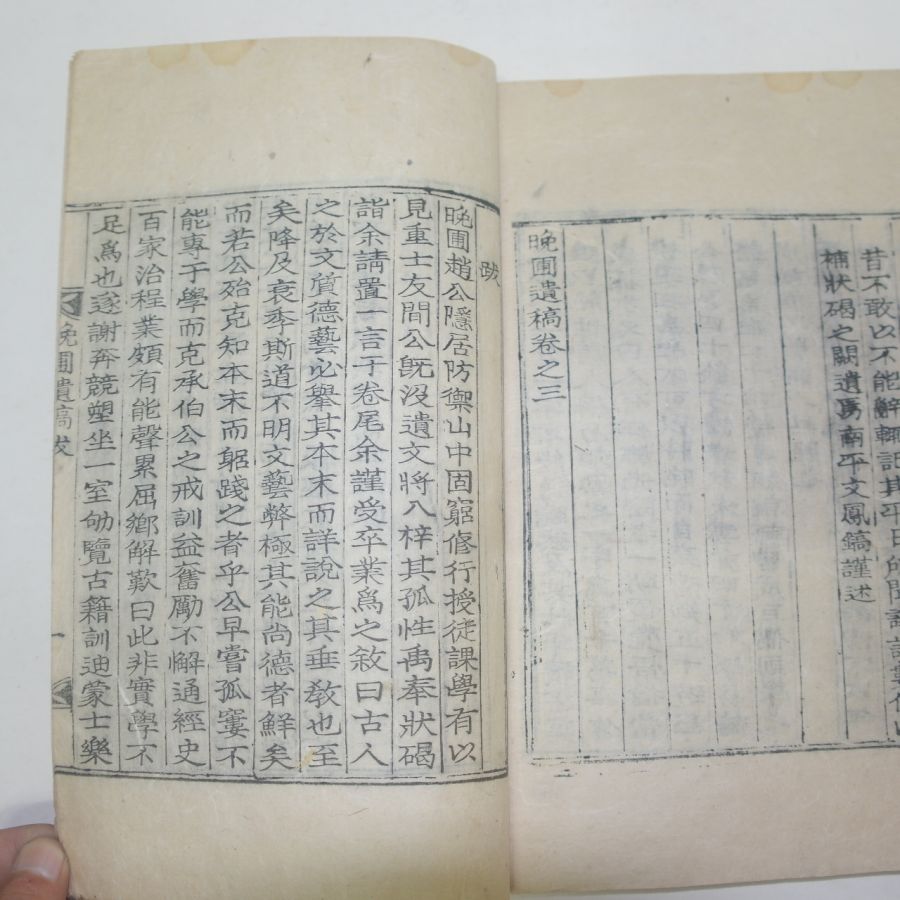 昔不敢以不能辭輒記其平日所聞
補狀碣之闕遺焉南平文鳳鎬謹述
晚圃遺稿卷之三
跋
晚圃趙公隱居防禦山中固窮修行授徒課學有以
見重士友間公旣沒遺文將入梓其孤性禹奉狀碣
詣余請置一言于卷尾余謹受卒業爲之敘曰古人
之於文質德藝必擧其本末而詳說之其垂敎也至
矣降及衰季斯道不明文藝弊極其能尚德者鮮矣
而若公殆克知本末而躬踐之者乎公早嘗孤窶不
能專于學而克承伯公之戒訓益奮勵不懈通經史
百家治程業頗有能聲累屈鄕解歎曰此非實學不
足爲也遂謝奔競塑坐一室劬覽古籍訓迪蒙士樂
晚圃遺稿跋
一